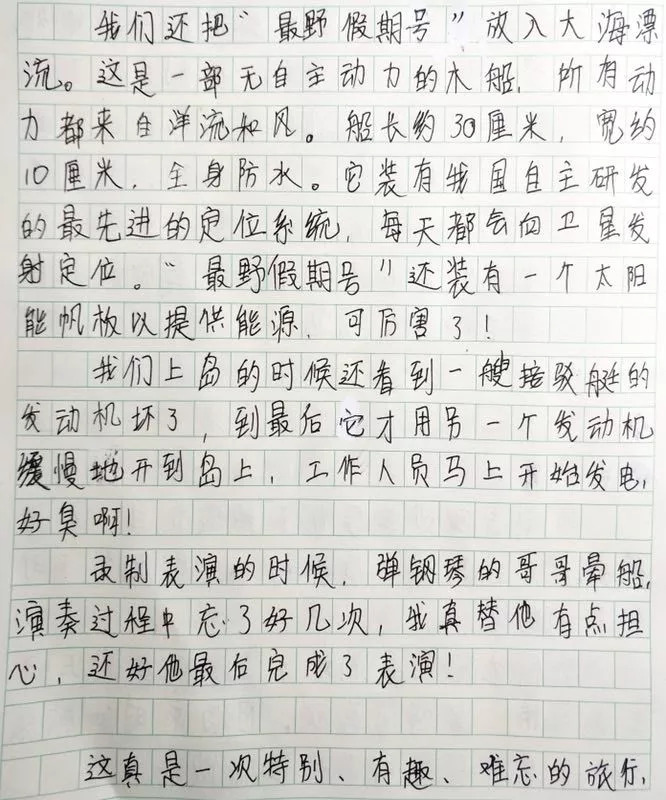 我们还把“最野假期号”放入大海漂
流。这是一部无自主动力的木船，所有动
力都来自洋流和风。船长约30厘米，宽约
10厘米，全身防水。它装有我国自主研发
的最先进的定位系统，每天都会向卫星发
射定位。“最野假期号”还装有一个太阳
能帆板以提供能源，可厉害了！
我们上岛的时候还看到一艘接驳艇的
发动机坏了，到最后它才用另一个发动机
缓慢地开到岛上，工作人员马上开始发电，
好臭啊！
录制表演的时候，弹钢琴的哥哥晕船，
演奏过程中忘了好几次，我真替他有点担
心，还好他最后完成了表演！
这真是一次特别、有趣、难忘的旅行，